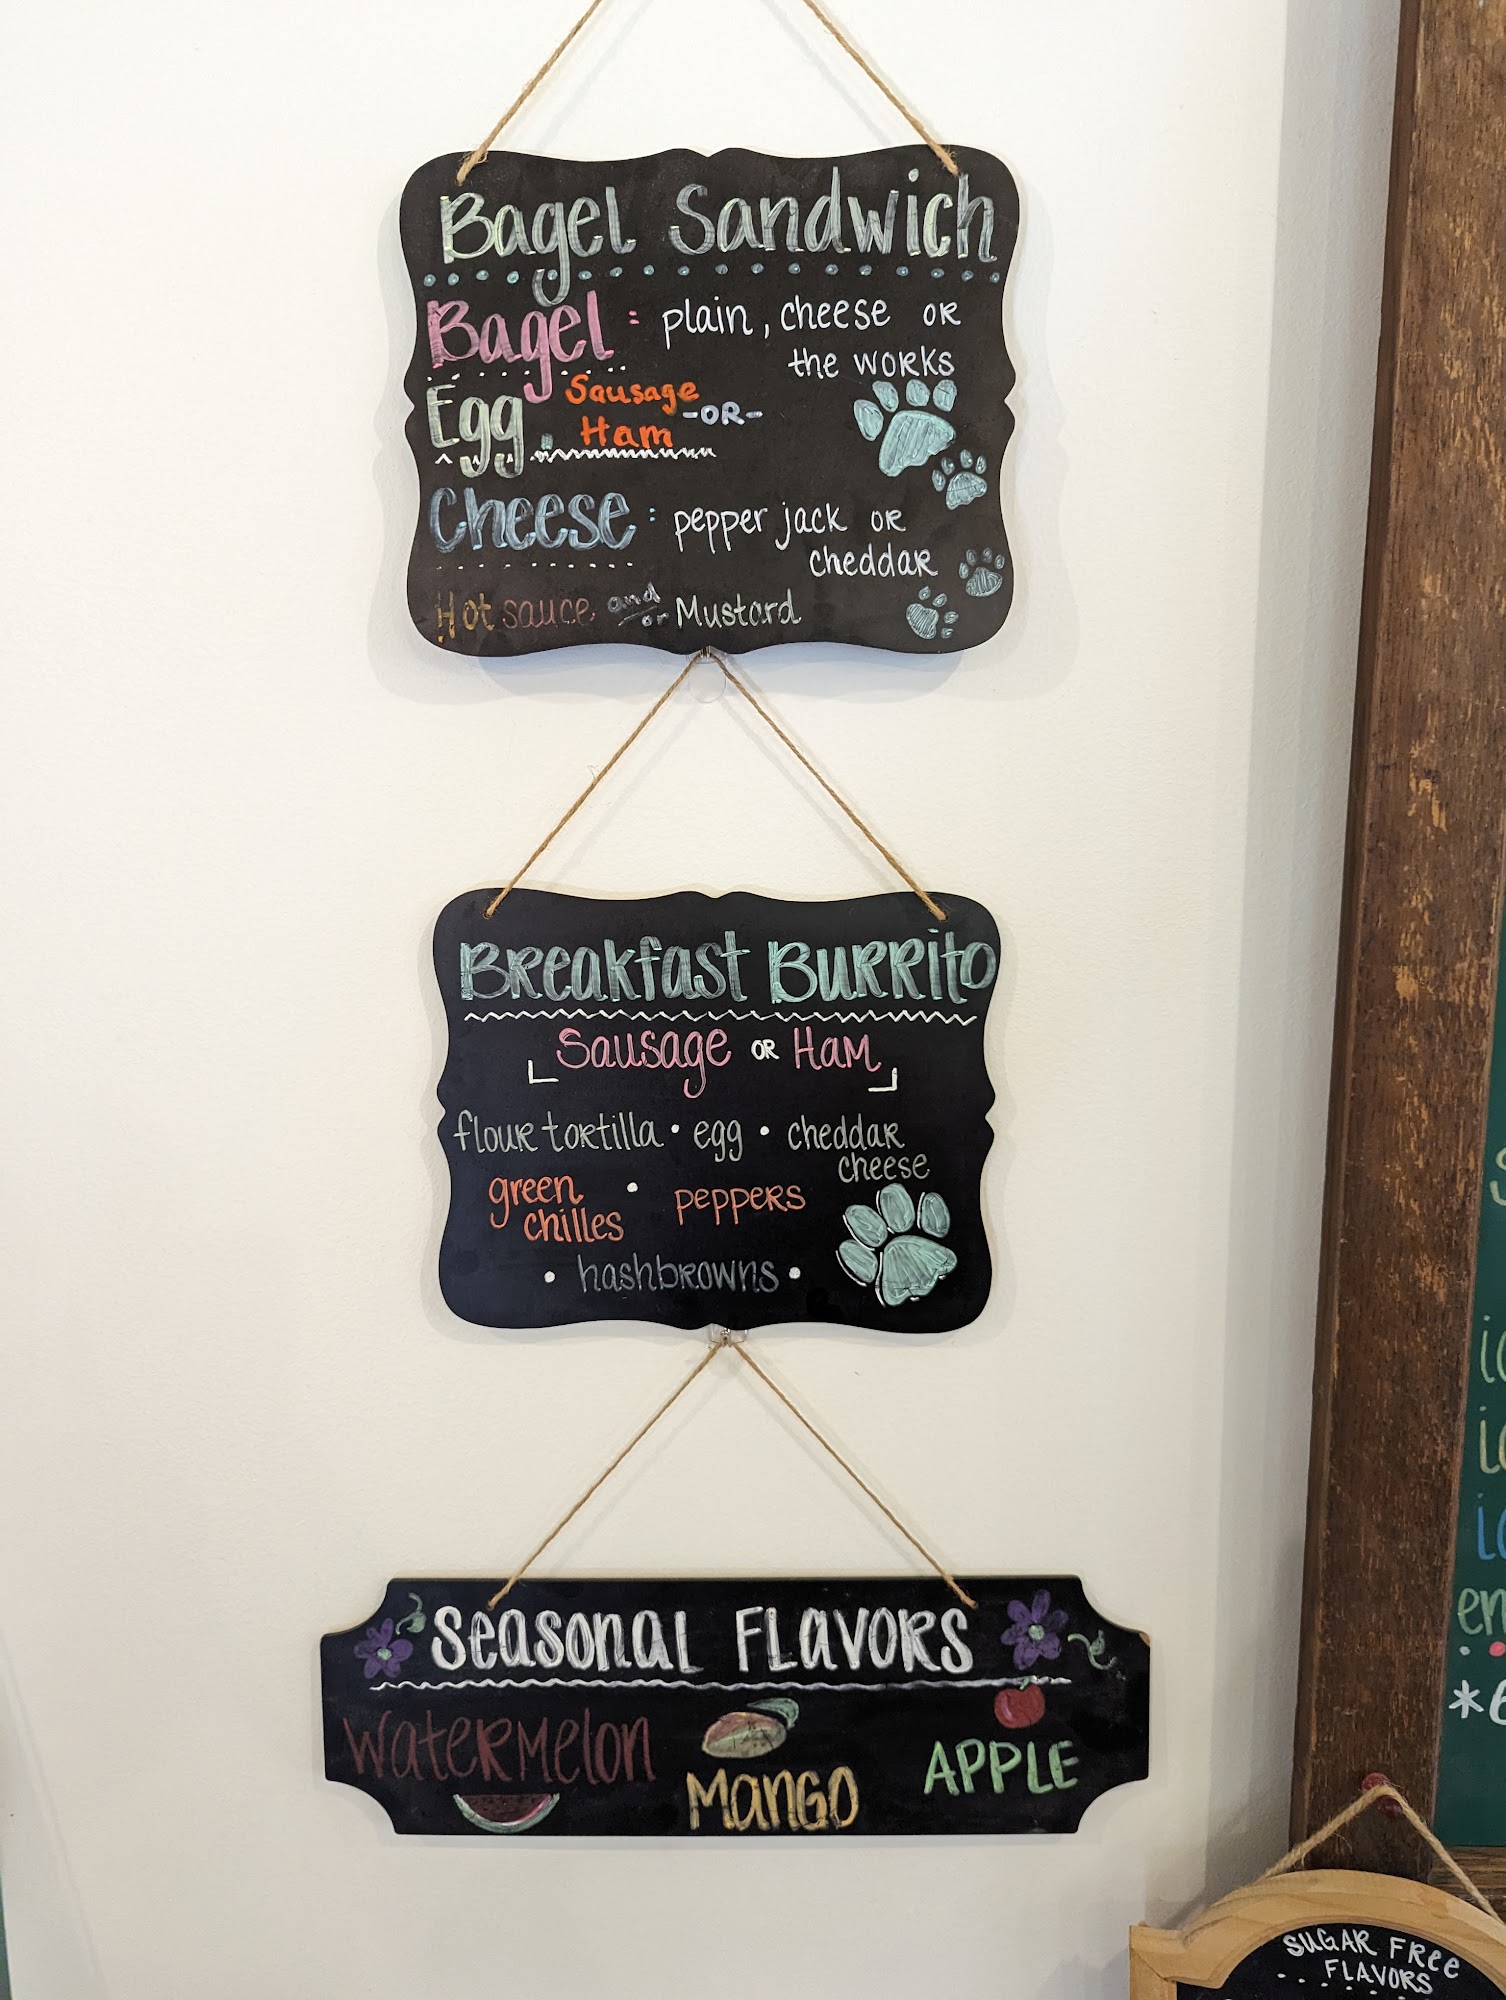 Bagel Sandwich
Bagel : plain, cheese OR
the works
Egg : Sausage
Ham -OR-
Cheese : pepper jack OR
cheddar
Hot sauce and or Mustard
Breakfast Burrito
Sausage OR Ham
flour tortilla • egg • cheddar
cheese
green • peppers
chilles
• hashbrowns •
Seasonal Flavors
Watermelon
Mango
APPLE
SUGAR FREE
FLAVORS